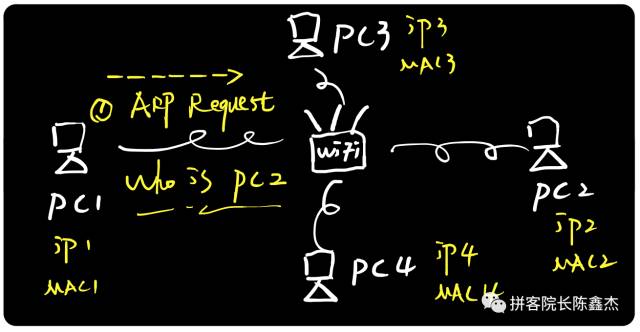 PC3 ip3
MAC3
① ARP Request
WiFi
who is PC2
PC1
ip1
MAC1
PC2
ip2
MAC2
PC4 ip4
MAC4
拼客院长陈鑫杰